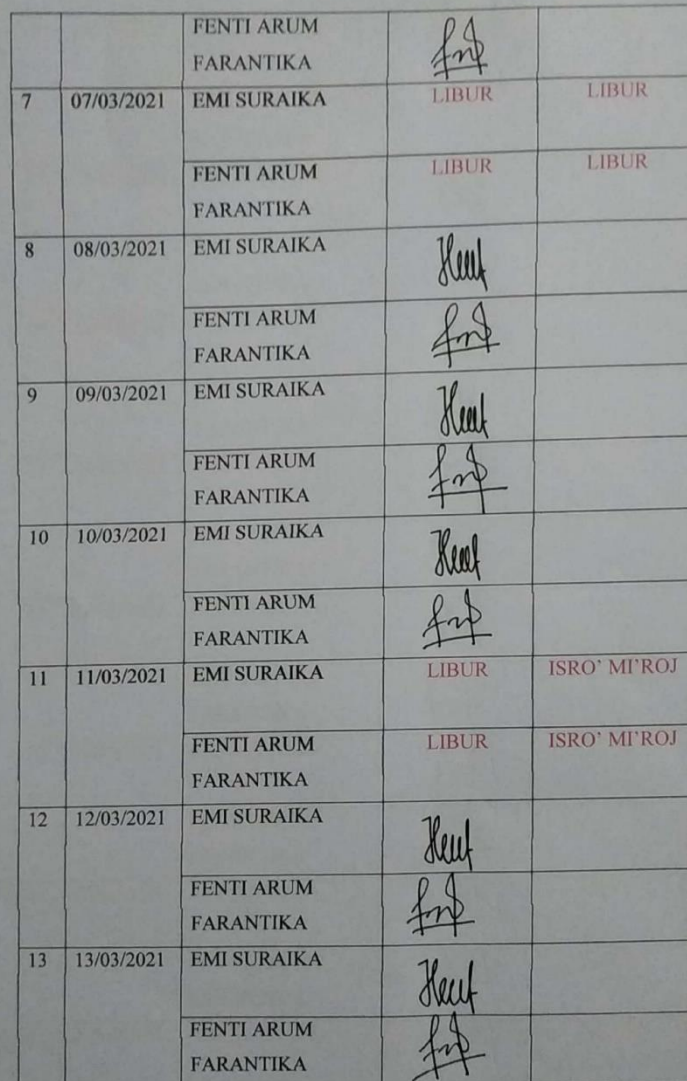 FENTI ARUM
FARANTIKA
7 07/03/2021 EMI SURAIKA LIBUR LIBUR
FENTI ARUM LIBUR LIBUR
FARANTIKA
8 08/03/2021 EMI SURAIKA
FENTI ARUM
FARANTIKA
9 09/03/2021 EMI SURAIKA
FENTI ARUM
FARANTIKA
10 10/03/2021 EMI SURAIKA
FENTI ARUM
FARANTIKA
11 11/03/2021 EMI SURAIKA LIBUR ISRO' MI'ROJ
FENTI ARUM LIBUR ISRO' MI'ROJ
FARANTIKA
12 12/03/2021 EMI SURAIKA
FENTI ARUM
FARANTIKA
13 13/03/2021 EMI SURAIKA
FENTI ARUM
FARANTIKA